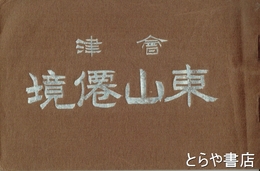 津會
境僊山東
とらや書店